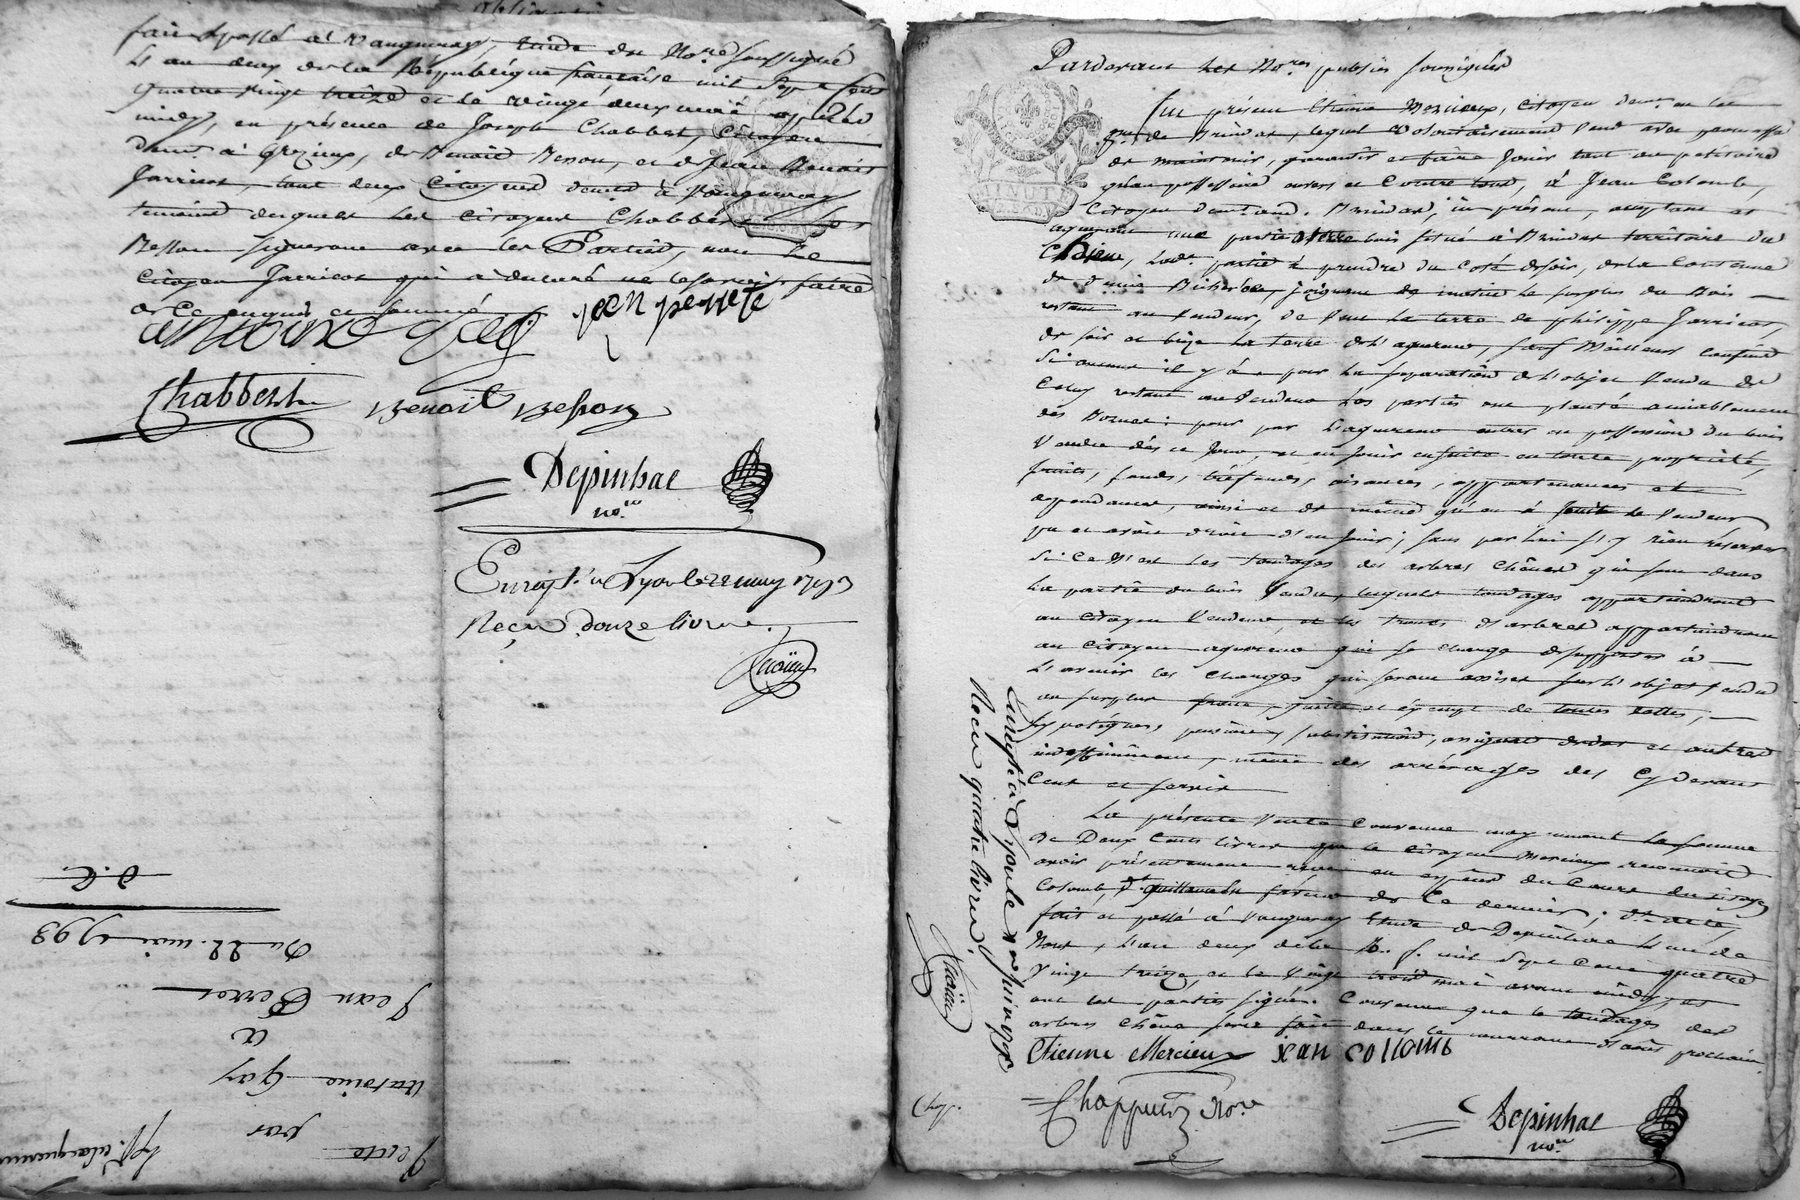 fait et passé à Vaugneray, étude du No.re soussigné
L'an deux de la République française mil sept cent
quatre vingt treize et le vingt deux mai après
midy, en présence de Joseph Chabbert, Citoyen
demt. à Grezieux, de Benoît Besson, et de Jean Benoit
Jarricot, tout deux Citoyens demts à Vaugneray
temoins desquels les Citoyens Chabbert et
Besson signeront avec les Parties, non le
Citoyen Jarricot qui a déclaré ne le savoir faire
de ce enquis et sommé
antoine gay jean perrot
Chabbert Benoît Besson
Depinhac
no.re
Enregt. à Lyon le 22 may 1793
Reçu douze livres.
D. C.
Du 22. mai 1793
Jean Perrot
à
Antoine Gay
par
Vente
Pardevant les No.res publics soussignés
fut présent Etienne Mercieux, citoyen demt. en la
psse. de Brindas, lequel volontairement vend avec promesse
de maintenir, garantir et faire jouir tant au petitoire
qu'au possessoire envers et contre tous, à Jean Colomb,
Citoyen dud. Brindas, ici présent, acceptant et
acquereur une partie de bois situé à Brindas territoire du
Chêne, lade. partie à prendre du coté de soir, de la contenue
de joignant de matin le surplus du Bois
restant au vendeur, de vent la terre de philippe Jarricot,
de soir et bize la terre de l'aquereur, sauf meilleurs confins
si aucuns il y à pour la separation de l'objet vendu de
celuy restant au vendeur les parties ont planté amiablement
des Bornes: pour par l'aquereur entrer en possession du bois
vendu dès ce jour, et en jouir ensuite en toute propriété,
fruits, fonds, tréfonds, aisances, appartenances et
dépendances, ainsi et de même qu'en à joui le vendeur
pu et avoir droit d'en jouir; sans par lui s'y rien réserver
si ce n'est les tondages des arbres chênes qui sont dans
la partie du bois vendu, lesquels tondages appartiendront
au citoyen vendeur, et les troncs d'arbres appartiendront
au citoyen aquereur qui se charge de supporter à
l'avenir les charges qui seront assises sur l'objet vendu
au surplus franc, quitte et éxempt de toutes dettes,
hypotéques, pensions, substitutions, et autres
indéffiniment, même des arrérages des cydevant
Cens et servis
La présente vente convenue moyennant la somme
de Deux Cents livres que le citoyen Mercieux reconnoit
avoir présentement reçue en espèces du Cours du citoyen
Colomb, Dt. quittance en faveur de ce dernier; Dt. acte,
fait et passé à Vaugneray Etude de Depinhac l'un de
Nous, l'an deux de la R. f. mil sept cent quatre
vingt treize, et le vingt trois mai avant midy, et
ont les parties signé. Convenu que le tondages des
arbres chêne sera fait dans le courrant d'août prochain
Etienne Mercieux jean collomb
Chappuis No.re
Depinhac
no.re
Enregistré à Lyon le juin 1793
Reçu quatre livres